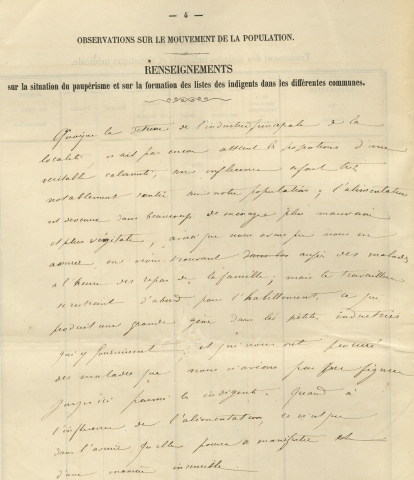 — 4 —
OBSERVATIONS SUR LE MOUVEMENT DE LA POPULATION.
RENSEIGNEMENTS
sur la situation du paupérisme et sur la formation des listes des indigents dans les différentes communes.
Quoique la de l'industrie principale de la
localité, n'ait pas encore atteint les proportions d'une
véritable calamité, son influence très
notablement sur notre population; l'alimentation
est devenue dans beaucoup de ménages plus mauvaise
et plus végétale, ainsi que nous avons pu nous en
assurer en nous trouvant auprès des malades
à l'heure des repas de la famille; mais le travailleur
se restreint d'abord pour l'habillement, ce qui
produit une grande gêne dans les petites industries
qui y fournissent, et qui nous ont procuré
des malades que nous n'avions pas vu figurer
jusqu'ici parmi les indigents. Quand à
l'influence de l'alimentation, ce n'est que
dans l'année qu'elle pourra se manifester et
d'une manière insensible.